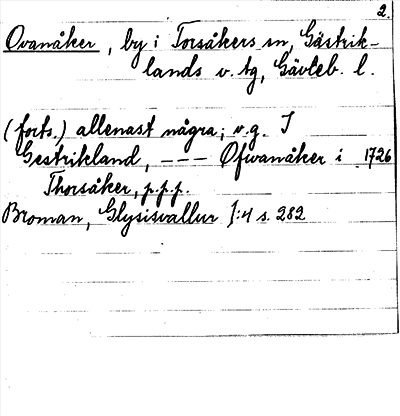 2.
Ovanåker, by i Torsåkers sn, Gästrik-
lands v. tg, Gävleb. l.
(forts.) allenast några; v.g. I
Gestrikland, --- Øfwanåker i 1726
Thorsåker, p.p.p.
Broman, Glysisvallur I:4 s. 282